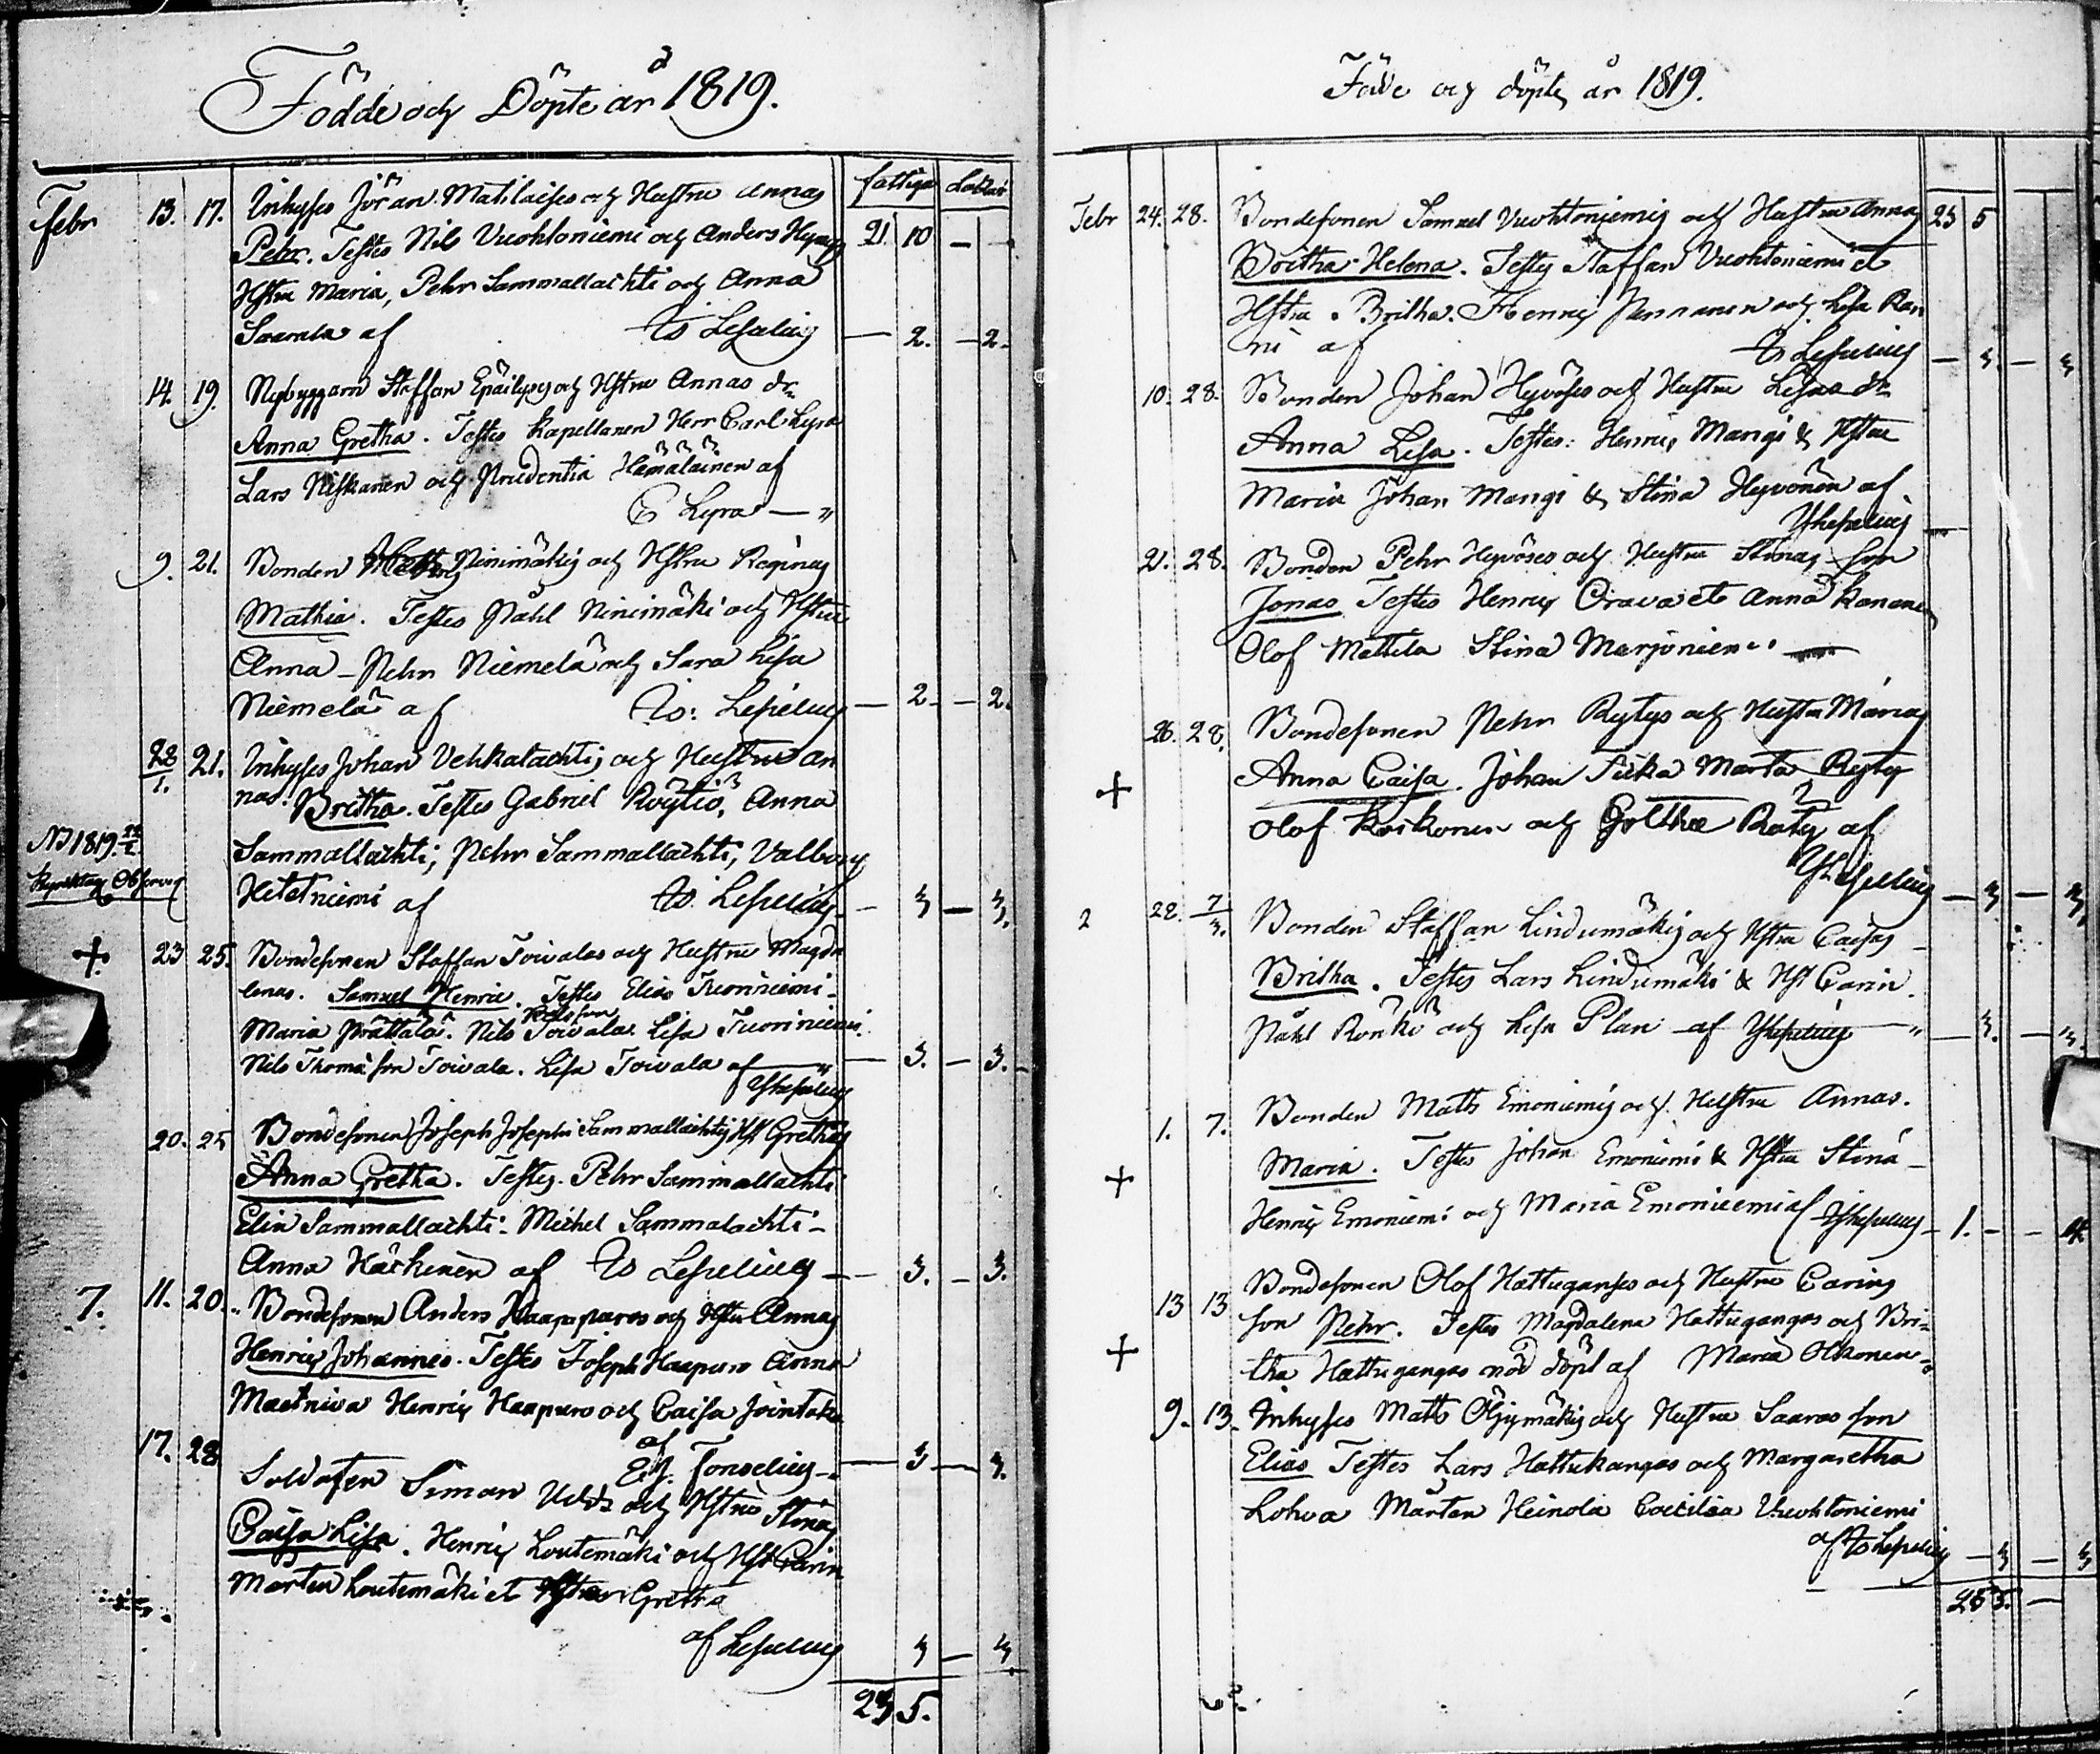 Födde och Döpte år 1819.
fattiga
Febr 13. 17. Inhyses Jöran Matilaises och Hustru Annas
Pehr. Testes Nils Vuohtoniemi och Anders 21. 10 — 
Hstru Maria, Pehr Sammallachti och Anna
Saarela af Lesulius — 2. — 2.
14. 19. Nybyggarn Staffan Epäilyses och Hstru Annas dr
Anna Gretha. Testes Kapellanen Herr Carl Lyra
Lars Niskanen och Prudentia Hämäläinen af
C Lyra — "
9. 21. Bonden Niinimäkis och Hstru Reginas
Mathia. Testes Påhl Niinimäki och Hstru
Anna — Pehr Niemelä och Sara Lisa
Niemelä af Leselius — 2 — 2.
22/1. 21. Inhyses Johan Vehkalachtis och Hustru An
nas. Britha. Testes Gabriel Röytiö, Anna
NB 1819. 22/1 Sammallachti; Pehr Sammallachti; Valborg
Observ. Hietaniemi af Leselius — 3 — 3.
+ 23 25. Bondesonen Staffan Toivalas och Hustru Magda
lenas. Samuel Henric. Testes Elias Tuoriniemi —
Maria Prättälä. Nils Nilsson Toivala Lisa Tuoriniemi
Nils Thomæson Toivala. Lisa Toivala af — " — 3. — 3.
20. 25 Bondesonen Joseph Josephs Sammallachtis Hst Grethas
Anna Gretha. Testes. Pehr Sammallachti
Elin Sammallachti. Michel Sammalachti —
Anna Härkönen af Leselius — 3. — 3.
7. 11. 20. Bondesonen Anders Haapapuros och Hstru Annas
Henric Johannes. Testes Joseph Haapuro Anna
Mustniva Henric Haapuro och Caisa
af
17. 28 — 3 — 3.
Soldaten Simon och Hstrus Stinas
Caisa Lisa. Henric Loutemäki och Hst Carin
Mårten Loutemäki et Hstru Gretha
af Leselius 3 — 3.
23 5.
Födde och döpte år 1819.
Febr 24. 28. Bondesonen Samuel Vuohtoniemis och Hustru Annas 23 5
Britha Helena. Testes Staffan Vuohtoniemi et
Hstru Britha. Henric Pennanen och Lisa Ran
ni af Leselius — 3. — 3
10. 28. Bonden Johan Hyvöses och Hustru Lisas dr
Anna Lisa. Testes: Henric Mangi & Hstru
Maria Johan Mangi & Stina Hyvönen af
21. 28. Bonden Pehr Hyvöses och Hustru Stinas Son
Jonas Testes Henric Orava et Anna Kananen
Olof Mattila Stina Marjoniemi —
26. 28. Bondesonen Pehr Rytys och Hustru Marias
+ Anna Caisa. Johan Marta Ryty
Olof Koikonen och Gretha Räty af
— 3 — 3
2 28. 7/3. Bonden Staffan Lindumäkis och Hstru Caisas —
Britha. Testes Lars Lindumäki & Hst Carin
Påhl Rönkö och Lisa Plan af " — 3. — 3.
1. 7. Bonden Matts Emoniemis och Hustru Annas.
+ Maria. Testes Johan Emoniemi & Hstru Stina —
Henric Emoniemi och Maria Emoniemi af — 1. —
13 13 Bondesonen Olof Hattuganges och Hustru Carins
son Pehr. Testes Magdalena Hattugangas och Bri=
+ tha Hattugangas nöd döpt af Maria Olkonen
9. 13. Inhyses Matts Öljymäkis och Hustru Saaras son
Elias Testes Lars Hattukangas och Margaretha
Lohva Mårten Heinola Caecilia Vuohtoniemi
af Leselius — 3 — 3